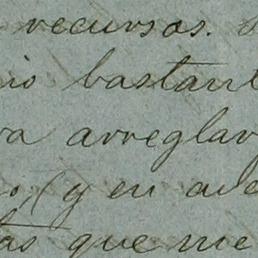 recursos.
io bastant
a arreglar
o, (y en ade
las que me